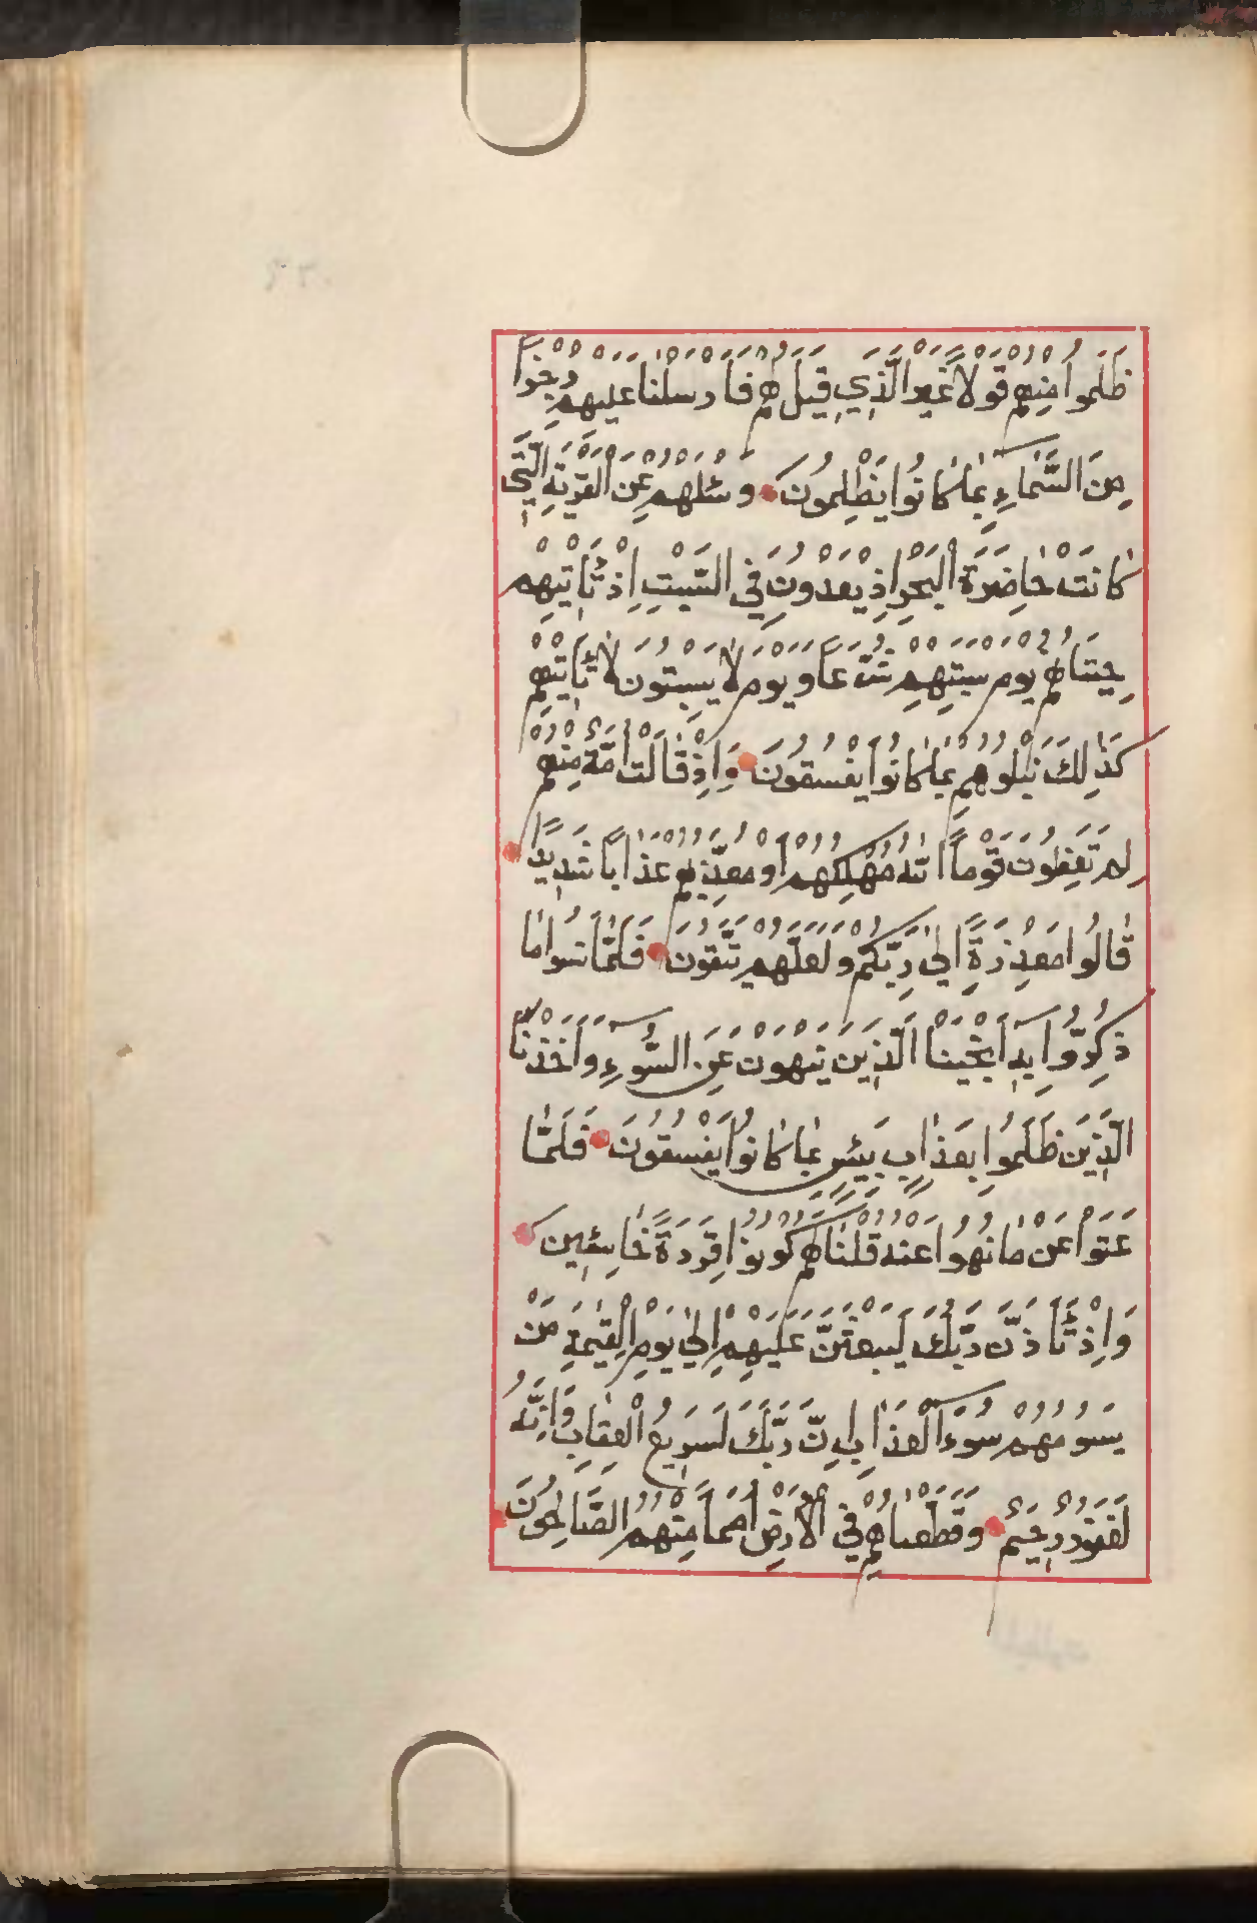 ظَلَمُوا مِنْهُمْ قَوْلاً غَيْرَ الَّذِي قِيلَ لَهُمْ فَاَرْسَلْنَا عَلَيْهِمْ رِجْزاً
مِنَ السَّمَاءِ بِمَا كَانُوا يَظْلِمُونَ وَسْئَلْهُمْ عَنِ الْقَرْيَةِ الَّتِي
كَانَتْ حَاضِرَةَ الْبَحْرِ اِذْ يَعْدُونَ فِي السَّبْتِ اِذْ تَاْتِيهِمْ
حِيتَانُهُمْ يَوْمَ سَبْتِهِمْ شُرَّعاً وَيَوْمَ لَا يَسْبِتُونَ لَا تَاْتِيهِمْ
كَذٰلِكَ نَبْلُوهُمْ بِمَا كَانُوا يَفْسُقُونَ وَاِذْ قَالَتْ اُمَّةٌ مِنْهُمْ
لِمَ تَعِظُونَ قَوْماً اللّٰهُ مُهْلِكُهُمْ اَوْ مُعَذِّبُهُمْ عَذَاباً شَدِيداً
قَالُوا مَعْذِرَةً اِلىٰ رَبِّكُمْ وَلَعَلَّهُمْ يَتَّقُونَ فَلَمَّا نَسُوا مَا
ذُكِّرُوا بِهِ اَنْجَيْنَا الَّذِينَ يَنْهَوْنَ عَنِ السُّوءِ وَاَخَذْنَا
الَّذِينَ ظَلَمُوا بِعَذَابٍ بَئِيسٍ بِمَا كَانُوا يَفْسُقُونَ فَلَمَّا
عَتَوْا عَنْ مَا نُهُوا عَنْهُ قُلْنَا لَهُمْ كُونُوا قِرَدَةً خَاسِئِينَ
وَاِذْ تَاَذَّنَ رَبُّكَ لَيَبْعَثَنَّ عَلَيْهِمْ اِلىٰ يَوْمِ الْقِيٰمَةِ مَنْ
يَسُومُهُمْ سُوءَ الْعَذَابِ اِنَّ رَبَّكَ لَسَرِيعُ الْعِقَابِ وَاِنَّهُ
لَغَفُورٌ رَحِيمٌ وَقَطَّعْنَاهُمْ فِي الْاَرْضِ اُمَماً مِنْهُمُ الصَّالِحُونَ